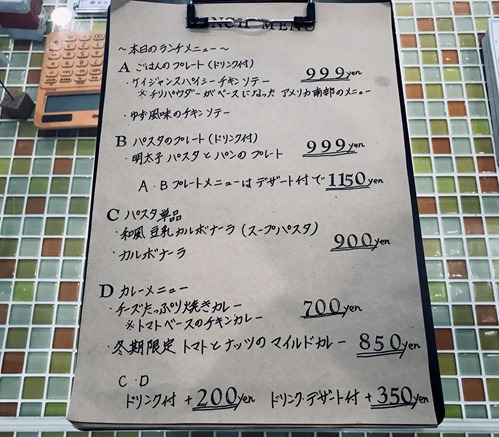 LUNCH MENU
～本日のランチメニュー～
A ごはんのプレート(ドリンク付)
・ケイジャンスパイシーチキンソテー 999yen
※チリパウダーがベースになったアメリカ南部のメニュー
・ゆず風味のチキンソテー
B パスタのプレート(ドリンク付) 999yen
・明太子パスタとパンのプレート
A・Bプレートメニューはデザート付で1150yen
C パスタ単品
・和風豆乳カルボナーラ(スープパスタ)
・カルボナーラ 900yen
D カレーメニュー
・チーズたっぷり焼きカレー 700yen
※トマトベースのチキンカレー
・冬期限定 トマトとナッツのマイルドカレー 850yen
C・D
ドリンク付 +200yen ドリンク・デザート付 +350yen